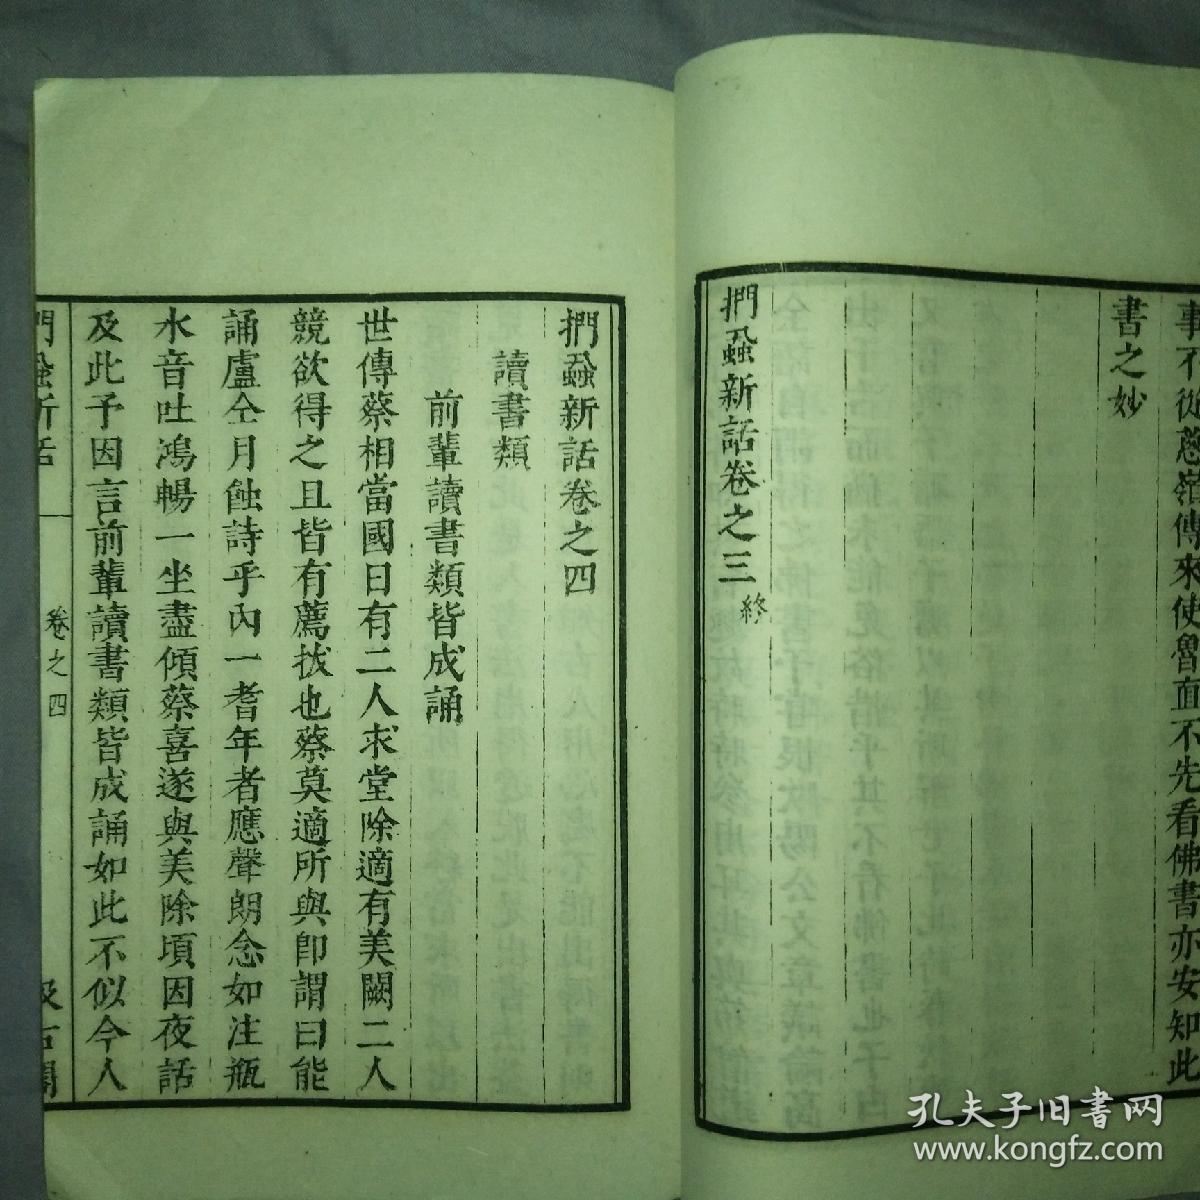 事不從蔥嶺傳來使魯直不先看佛書亦安知此
書之妙
捫蝨新話卷之三終
捫蝨新話卷之四
讀書類
前輩讀書類皆成誦
世傳蔡相當國日有二人求堂除適有美闕二人
競欲得之且皆有薦拔也蔡莫適所與卽謂曰能
誦盧仝月蝕詩乎內一耆年者應聲朗念如注瓶
水音吐鴻暢一坐盡傾蔡喜遂與美除頃因夜話
及此予因言前輩讀書類皆成誦如此不似今人
捫蝨新話 卷之四 汲古閣
孔夫子旧书网
www.kongfz.com